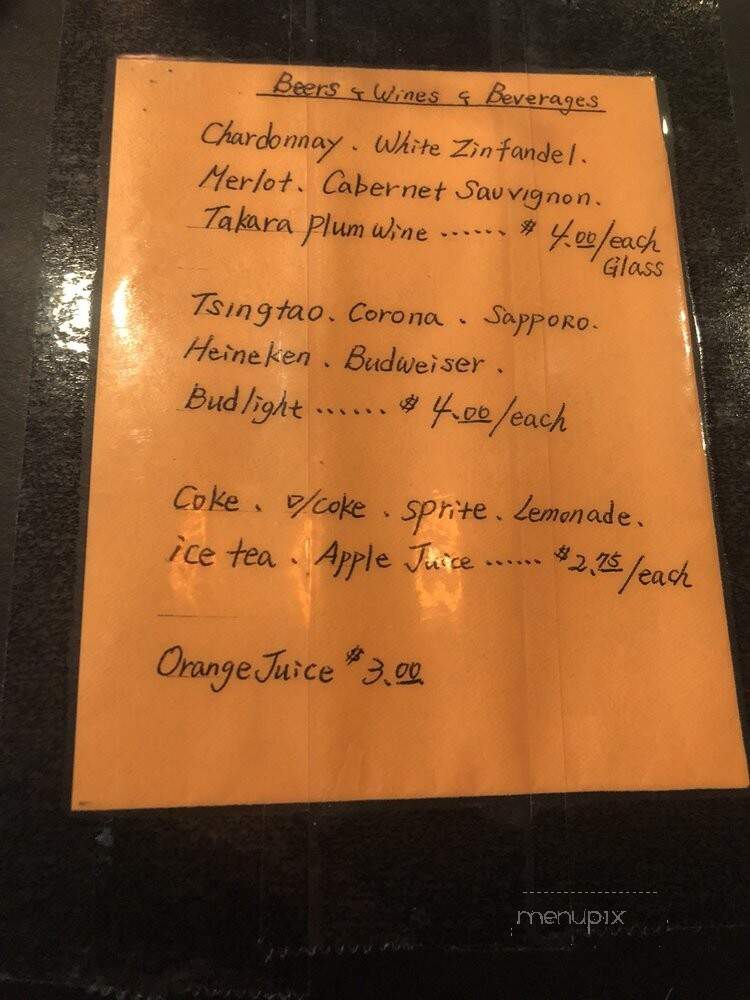 Beers & Wines & Beverages
Chardonnay. White Zinfandel.
Merlot. Cabernet Sauvignon.
Takara plum wine ...... $ 4.00/each
Glass
Tsingtao. Corona. Sapporo.
Heineken. Budweiser.
Budlight ...... $ 4.00/each
Coke. D/coke. sprite. Lemonade.
ice tea. Apple Juice ...... $2.75/each
Orange Juice $3.00
menupix